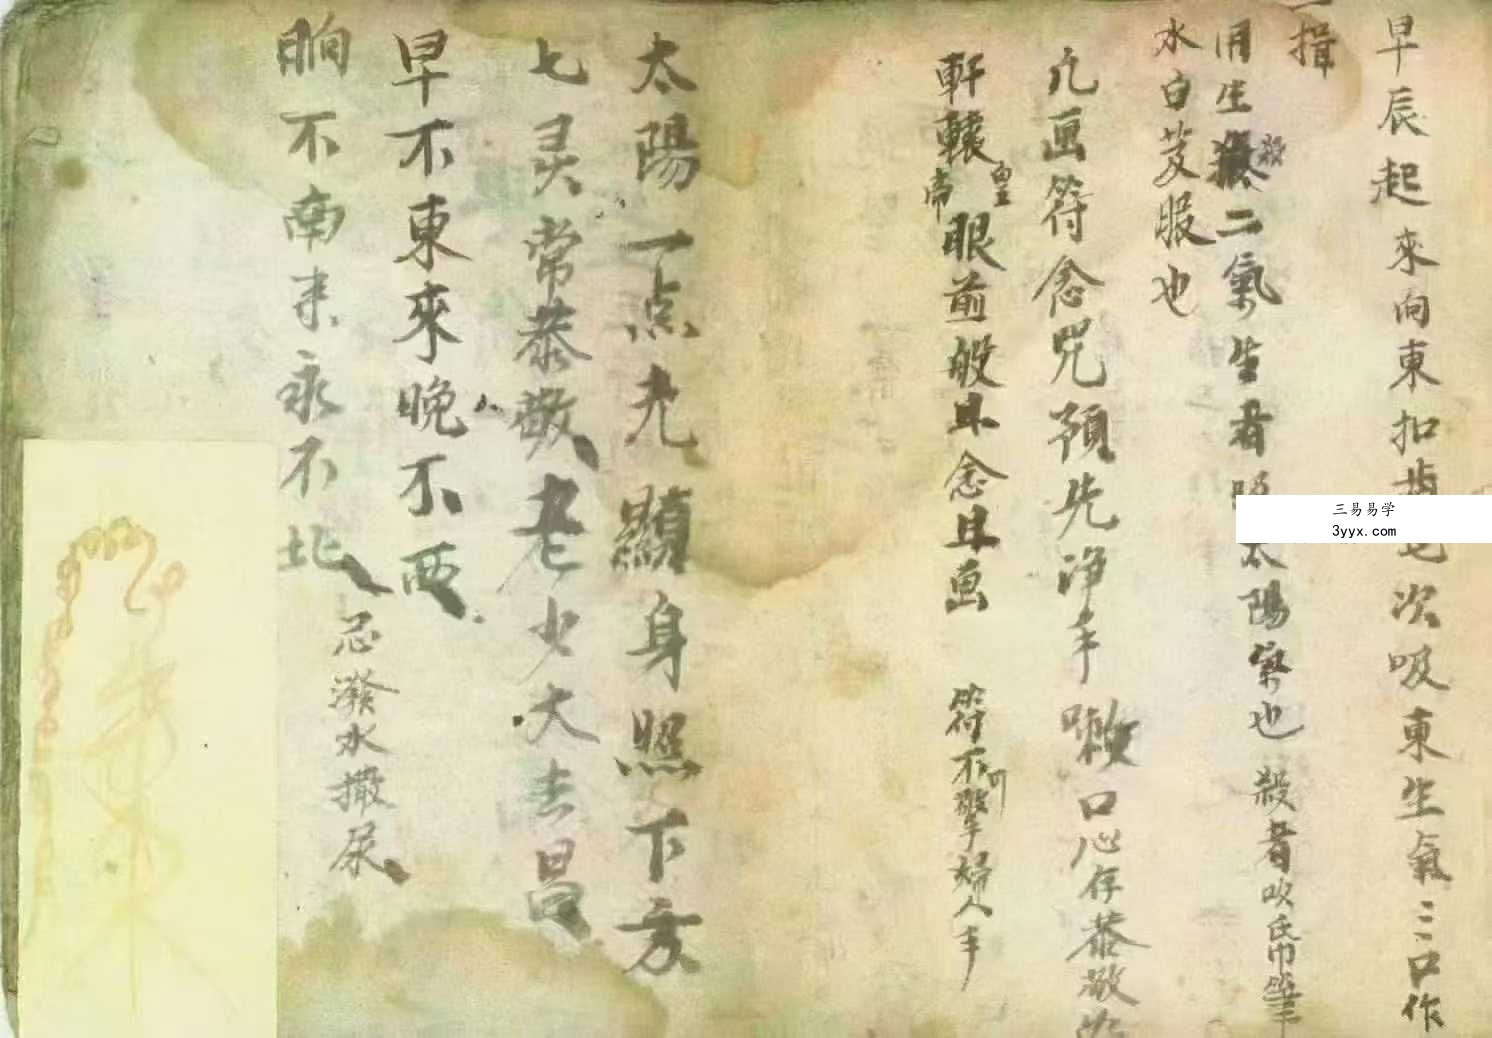 早辰起來向東扣齿七次吸東生氣三口作
一揖
用生殺二氣生者 太陽氣也 殺者吹氏帋筆
水白芨服也
凡画符念咒預先净手嗽口心存恭敬如
軒轅皇帝眼前般且念且画 符不可擎婦人手
太陽一点光顯身照下方
七灵常恭敬老少大吉昌
早不東來晚不西
晌不南來永不北 忌潑水撒尿
三易易学
3yyx.com